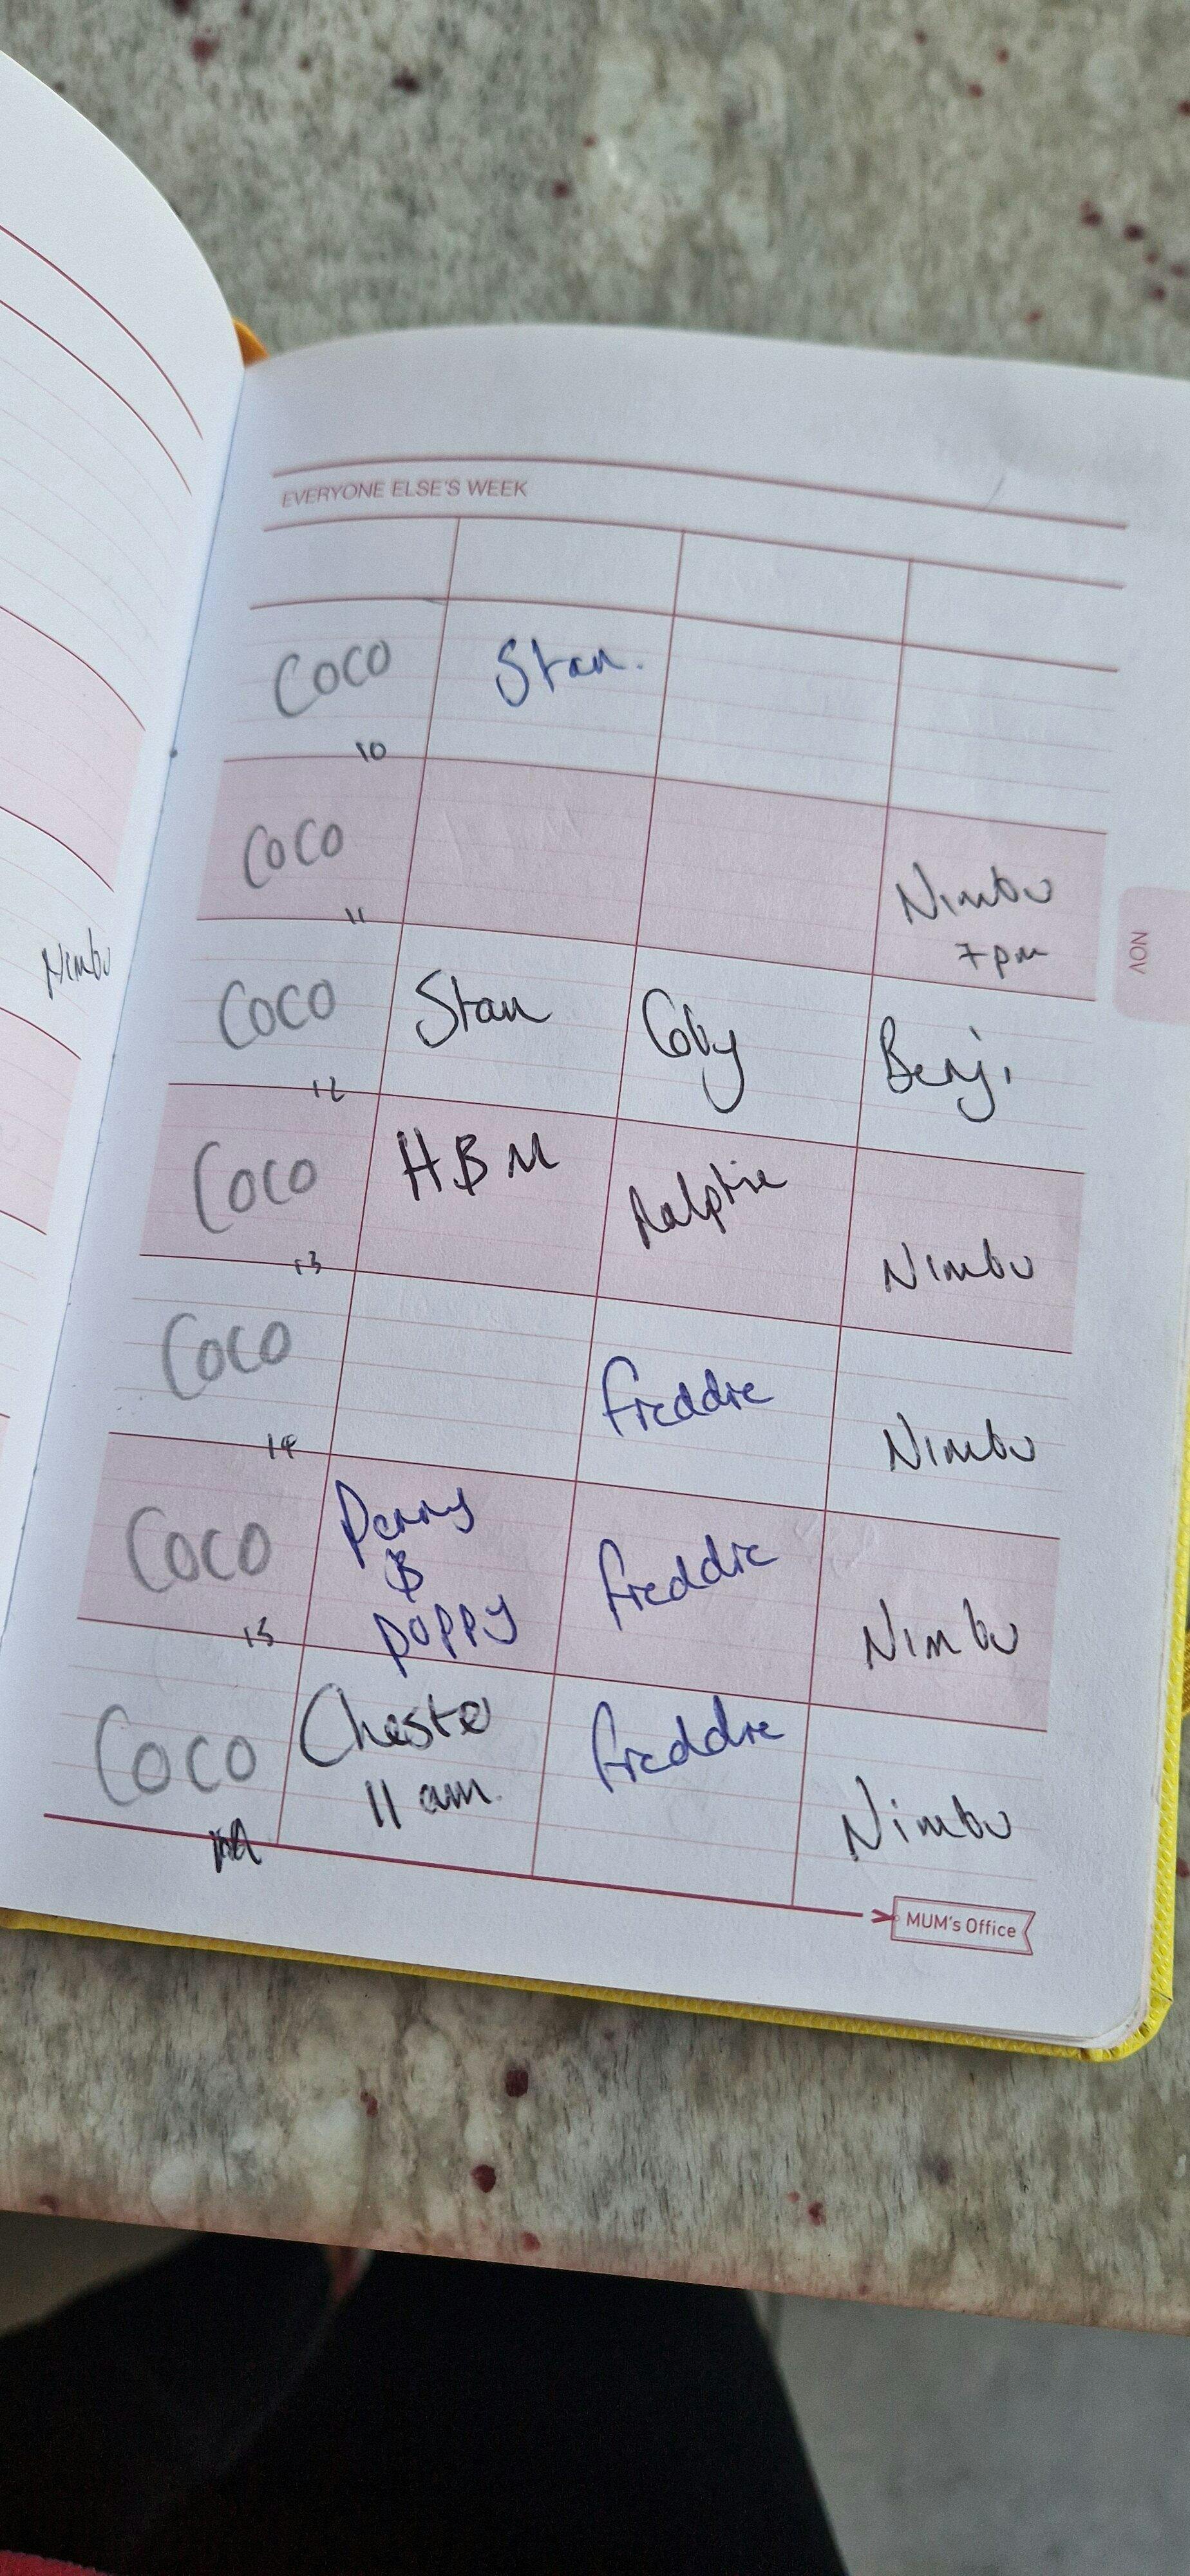 EVERYONE ELSE'S WEEK
Coco Stan.
10
Coco Nimbu
7pm
11
NOV
Nimbu
Coco Stan Coby Benji
12
Coco H&M Ralphie Nimbu
13
Coco Freddie Nimbu
14
Coco Penny & POPPY Freddie Nimbu
15
Coco Chester Freddie Nimbu
11 am.
MUM's Office